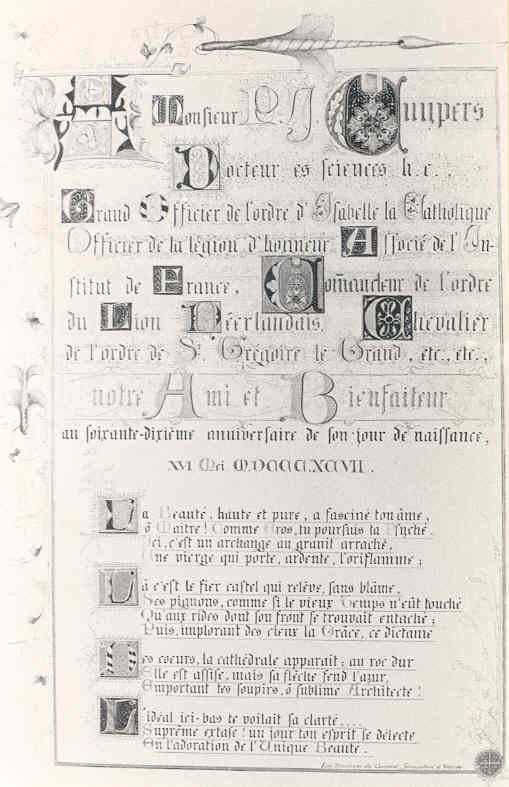 A Monsieur P. J. H. Cuijpers
Docteur es sciences h. c.,
Grand Officier de l'ordre d'Isabelle la Catholique
Officier de la légion d'honneur Associé de l'In-
stitut de France, Com̄andeur de l'ordre
du Lion Néerlandais, Chevalier
de l'ordre de St. Grégoire le Grand, etc., etc.,
notre Ami et Bienfaiteur
au soixante-dixième anniversaire de son jour de naissance,
XVI Mei M.DCCCCXCVII.
La Beauté, haute et pure, a fasciné ton âme,
ô Maitre! Comme Eros, tu poursuis ta Psyché.
Ici, c'est un archange au granit arraché,
Une vierge qui porte, ardente, l'oriflamme;
Là c'est le fier castel qui relève, sans blâme,
Ses pignons, comme si le vieux Temps n'eût touché
Qu'aux rides dont son front se trouvait entaché;
Puis, implorant des cieux la Grâce, ce dictame
Des coeurs, la cathédrale apparaît; au roc dur
Elle est assise, mais sa flèche fend l'azur,
Emportant tes soupirs, ô sublime Architecte!
L'idéal ici-bas te voilait sa clarté....
Suprème extase! un jour ton esprit se délecte
En l'adoration de l'Unique Beauté.